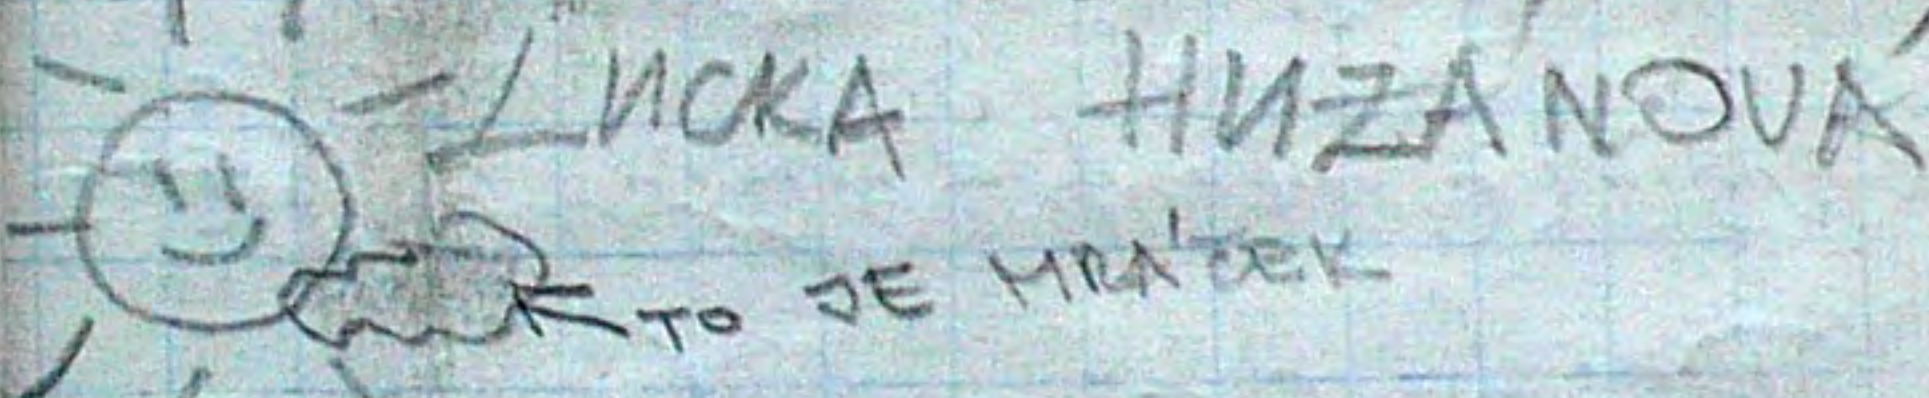 LUCKA HUZANOVÁ
TO JE MRÁČEK